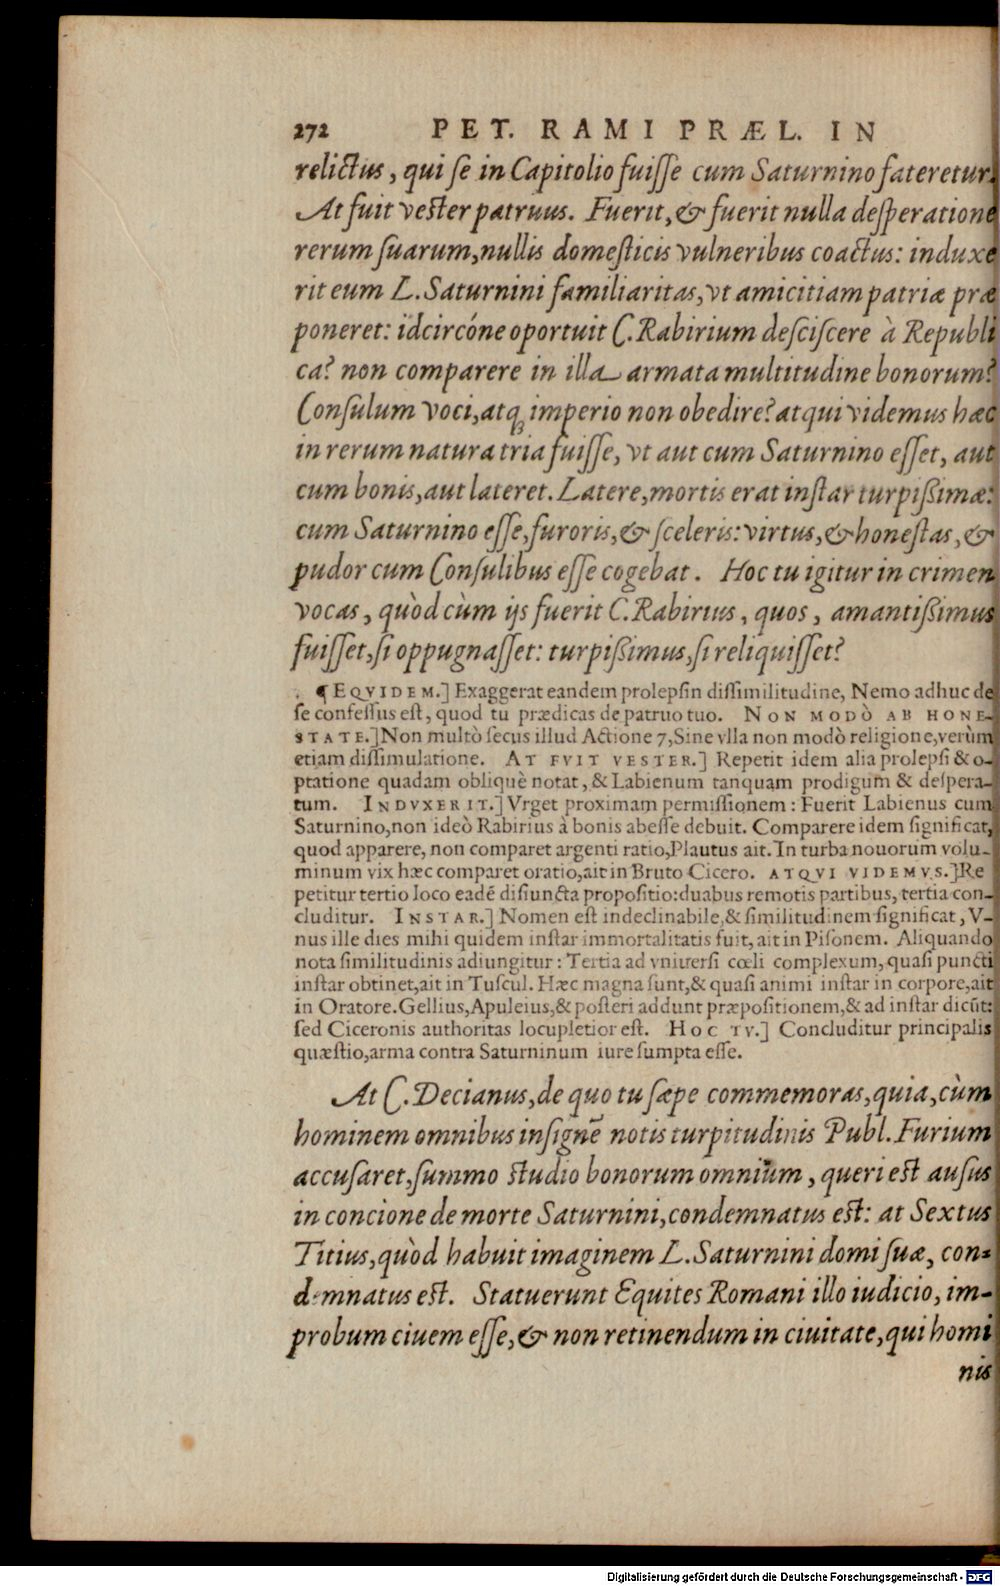 272 PET. RAMI PRÆL. IN
relictus, qui se in Capitolio fuisse cum Saturnino fateretur.
At fuit vester patruus. Fuerit, & fuerit nulla desperatione
rerum suarum, nullis domesticis vulneribus coactus: induxe
rit eum L. Saturnini familiaritas, vt amicitiam patriæ præ
poneret: idcircóne oportuit C. Rabirium desciscere à Republi
ca? non comparere in illa armata multitudine bonorum?
Consulum voci, atq; imperio non obedire? atqui videmus hæc
in rerum natura tria fuisse, vt aut cum Saturnino esset, aut
cum bonis, aut lateret. Latere, mortis erat instar turpißimæ:
cum Saturnino esse, furoris, & sceleris: virtus, & honestas, &
pudor cum Consulibus esse cogebat. Hoc tu igitur in crimen
vocas, quòd cùm ijs fuerit C. Rabirius, quos, amantißimus
fuisset, si oppugnasset: turpißimus, si reliquisset?
¶ EQVIDEM.] Exaggerat eandem prolepsin dissimilitudine, Nemo adhuc de
se confessus est, quod tu prædicas de patruo tuo. NON MODÒ AB HONE-
STATE.] Non multò secus illud Actione 7, Sine vlla non modò religione, verùm
etiam dissimulatione. AT FVIT VESTER.] Repetit idem alia prolepsi & o-
ptatione quadam obliquè notat, & Labienum tanquam prodigum & despera-
tum. INDVXERIT.] Vrget proximam permissionem: Fuerit Labienus cum
Saturnino, non ideò Rabirius à bonis abesse debuit. Comparere idem significat,
quod apparere, non comparet argenti ratio, Plautus ait. In turba nouorum volu-
minum vix hæc comparet oratio, ait in Bruto Cicero. ATQVI VIDEMVS.] Re
petitur tertio loco eadē disiuncta propositio: duabus remotis partibus, tertia con-
cluditur. INSTAR.] Nomen est indeclinabile, & similitudinem significat, V-
nus ille dies mihi quidem instar immortalitatis fuit, ait in Pisonem. Aliquando
nota similitudinis adiungitur: Tertia ad vniuersi cœli complexum, quasi puncti
instar obtinet, ait in Tuscul. Hæc magna sunt, & quasi animi instar in corpore, ait
in Oratore. Gellius, Apuleius, & posteri addunt præpositionem, & ad instar dicūt:
sed Ciceronis authoritas locupletior est. HOC TV.] Concluditur principalis
quæstio, arma contra Saturninum iure sumpta esse.
At C. Decianus, de quo tu sæpe commemoras, quia, cùm
hominem omnibus insignē notis turpitudinis Publ. Furium
accusaret, summo studio bonorum omnium, queri est ausus
in concione de morte Saturnini, condemnatus est: at Sextus
Titius, quòd habuit imaginem L. Saturnini domi suæ, con-
demnatus est. Statuerunt Equites Romani illo iudicio, im-
probum ciuem esse, & non retinendum in ciuitate, qui homi
nis
Digitalisierung gefördert durch die Deutsche Forschungsgemeinschaft - DFG